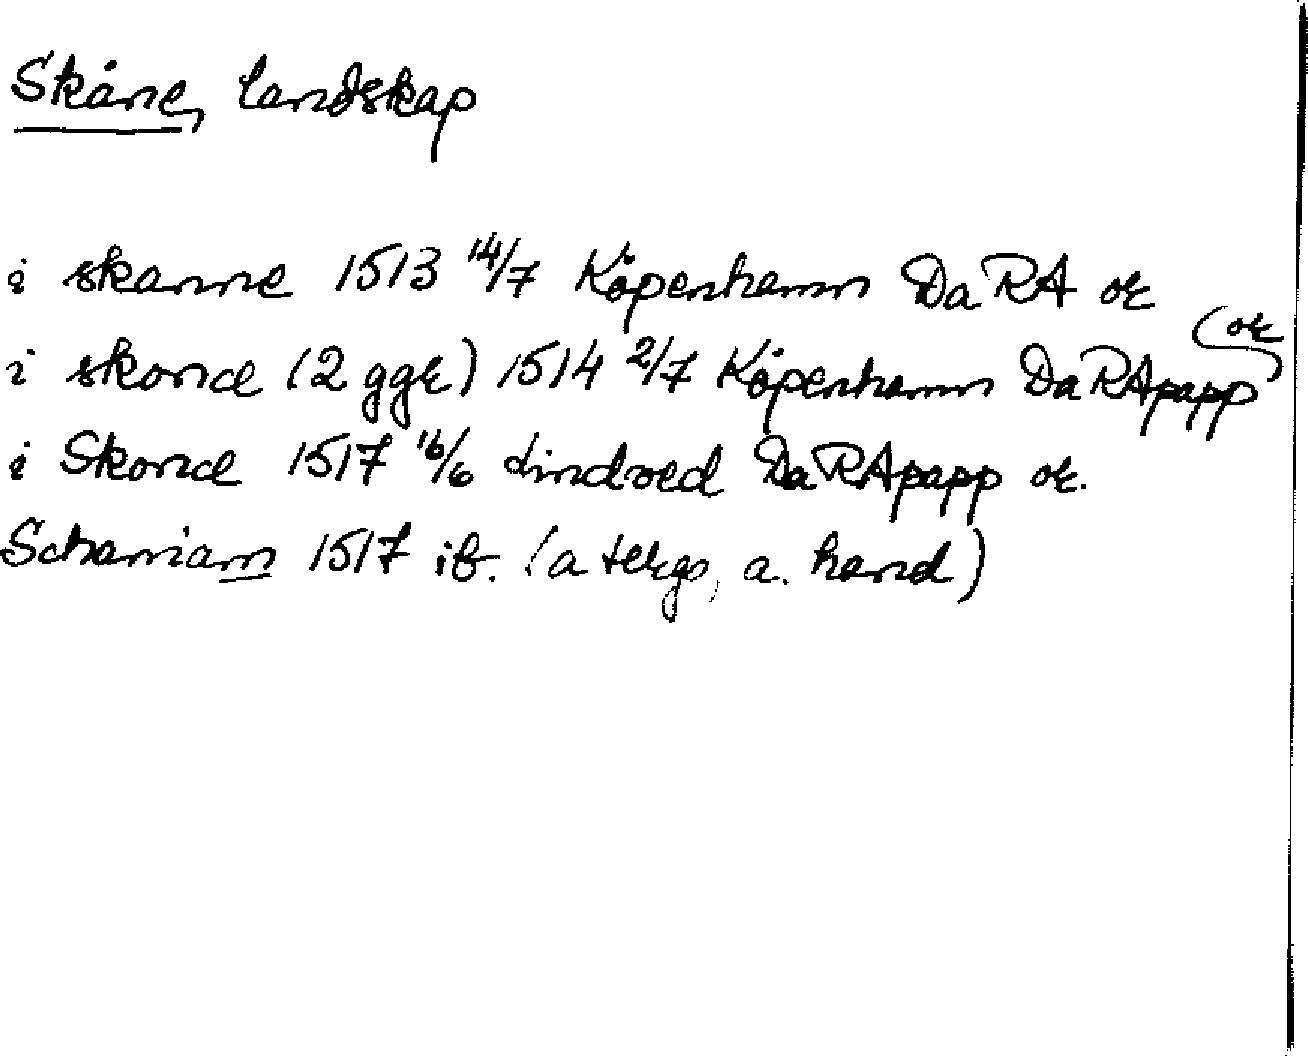 Skåne, landskap
i skanne 1513 14/7 Köpenhamn DaRA or
i skone (2 ggr) 1514 2/7 Köpenhamn DaRApapp or
i Skone 1517 16/6 Lindved DaRApapp or.
Schaniam 1517 ib. (a tergo, a. hand)